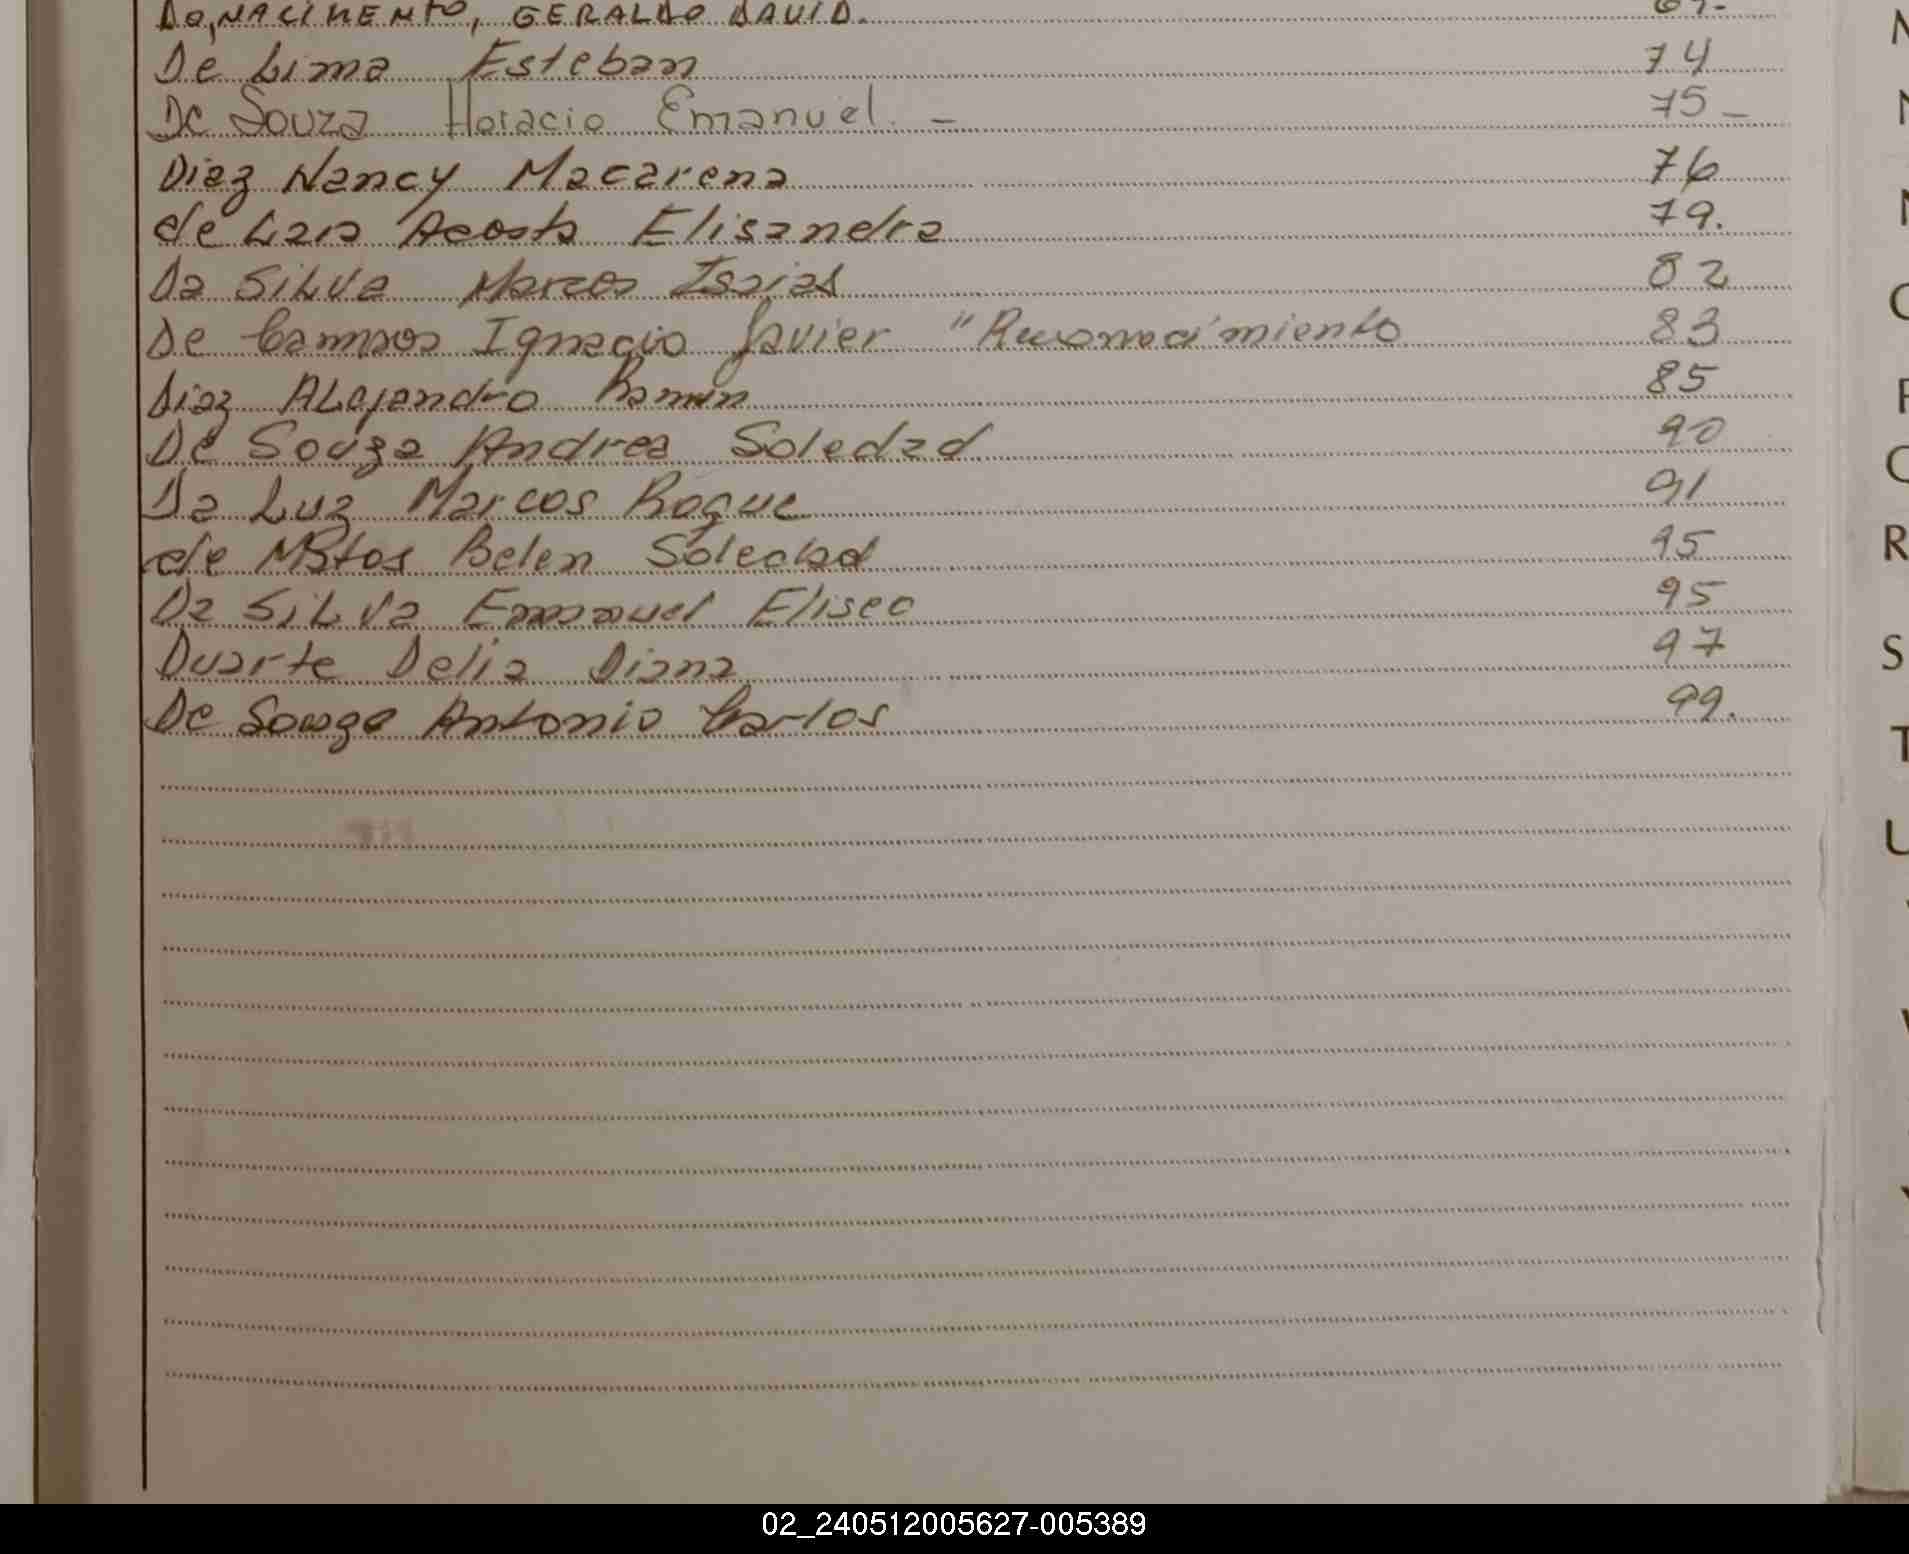 Do, NACIMENTO, GERALDO DAVID. 69.-
De Lima Esteban 74
De Souza Horacio Emanuel. - 75 -
Diaz Nancy Macarena 76
de Lara Acosta Elisandra 79.
Da SiLva Marcos Isaias 82
De Campos Ignacio Javier "Reconocimiento 83
Diaz ALejandro Ramon 85
De Souza Andrea Soledad 90
Da Luz Marcos Roque 91
de Matos Belen Soledad 95
Da SiLva Emanuel Eliseo 95
Duarte Delia Diana 97
De Souza Antonio Carlos 99.
R
S
T
U
02_240512005627-005389